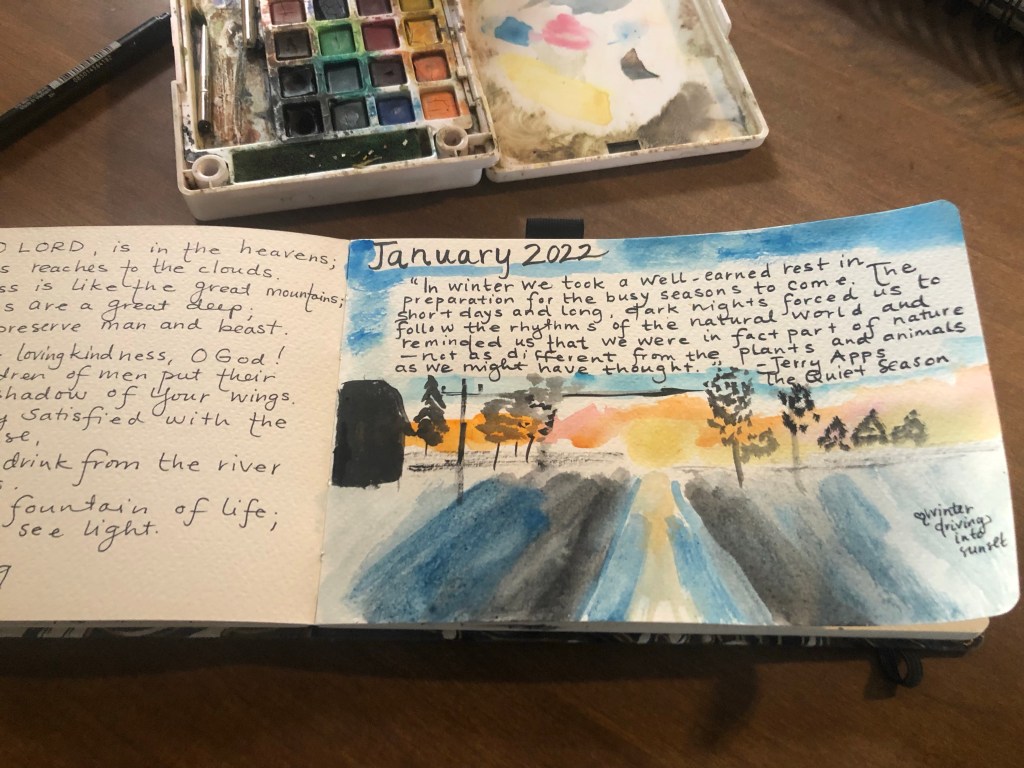 O LORD, is in the heavens;
s reaches to the clouds.
ss is like the great mountains;
s are a great deep;
preserve man and beast.
lovingkindness, O God!
dren of men put their
shadow of Your wings.
y satisfied with the
se,
drink from the river
s.
fountain of life;
see light.
9
January 2022
"In winter we took a well-earned rest in
preparation for the busy seasons to come. The
short days and long, dark nights forced us to
follow the rhythms of the natural world and
reminded us that we were in fact part of nature
— not as different from the plants and animals
as we might have thought." —Jerry Apps
The Quiet Season
winter
driving
into
sunset